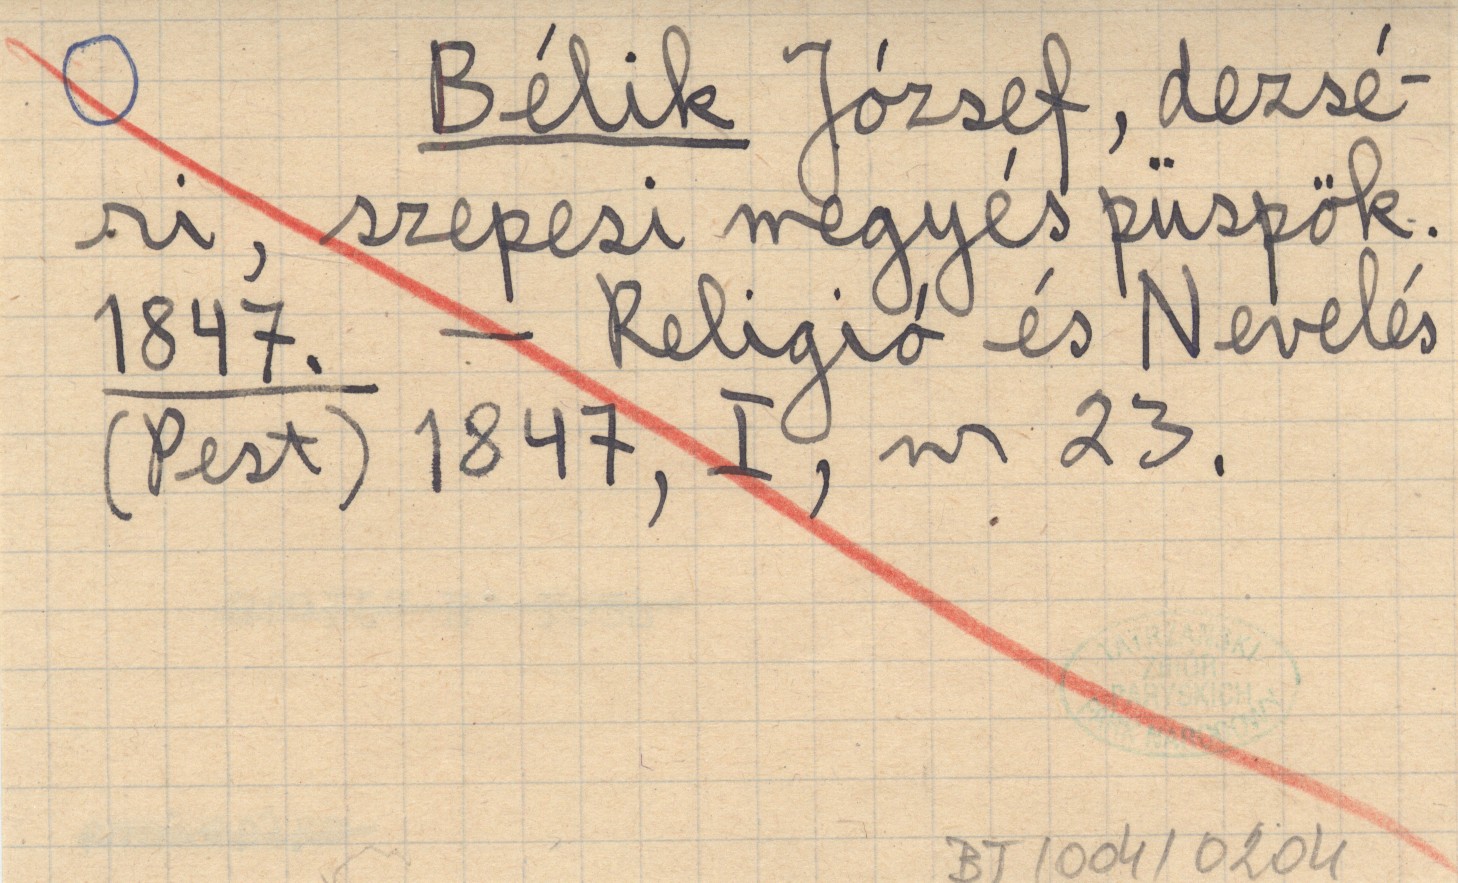 Bélik József, dezsé-
ri, szepesi megyés püspök.
1847. — Religió és Nevelés
(Pest) 1847, I, nr 23.
TATRZAŃSKI
ZBIÓR
PARYSKICH
BJ/004/0204